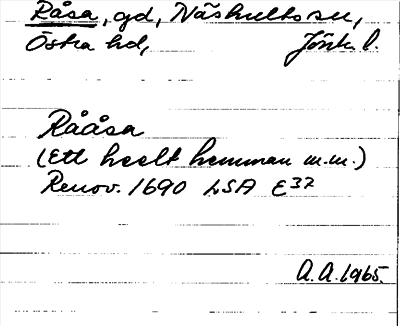 Råsa, gd, Näshults sn,
Östra hd, Jönk. l.
Rååsa
(Ett heelt hemman m.m.)
Renov. 1690 LSA E37
A.A. 1965.